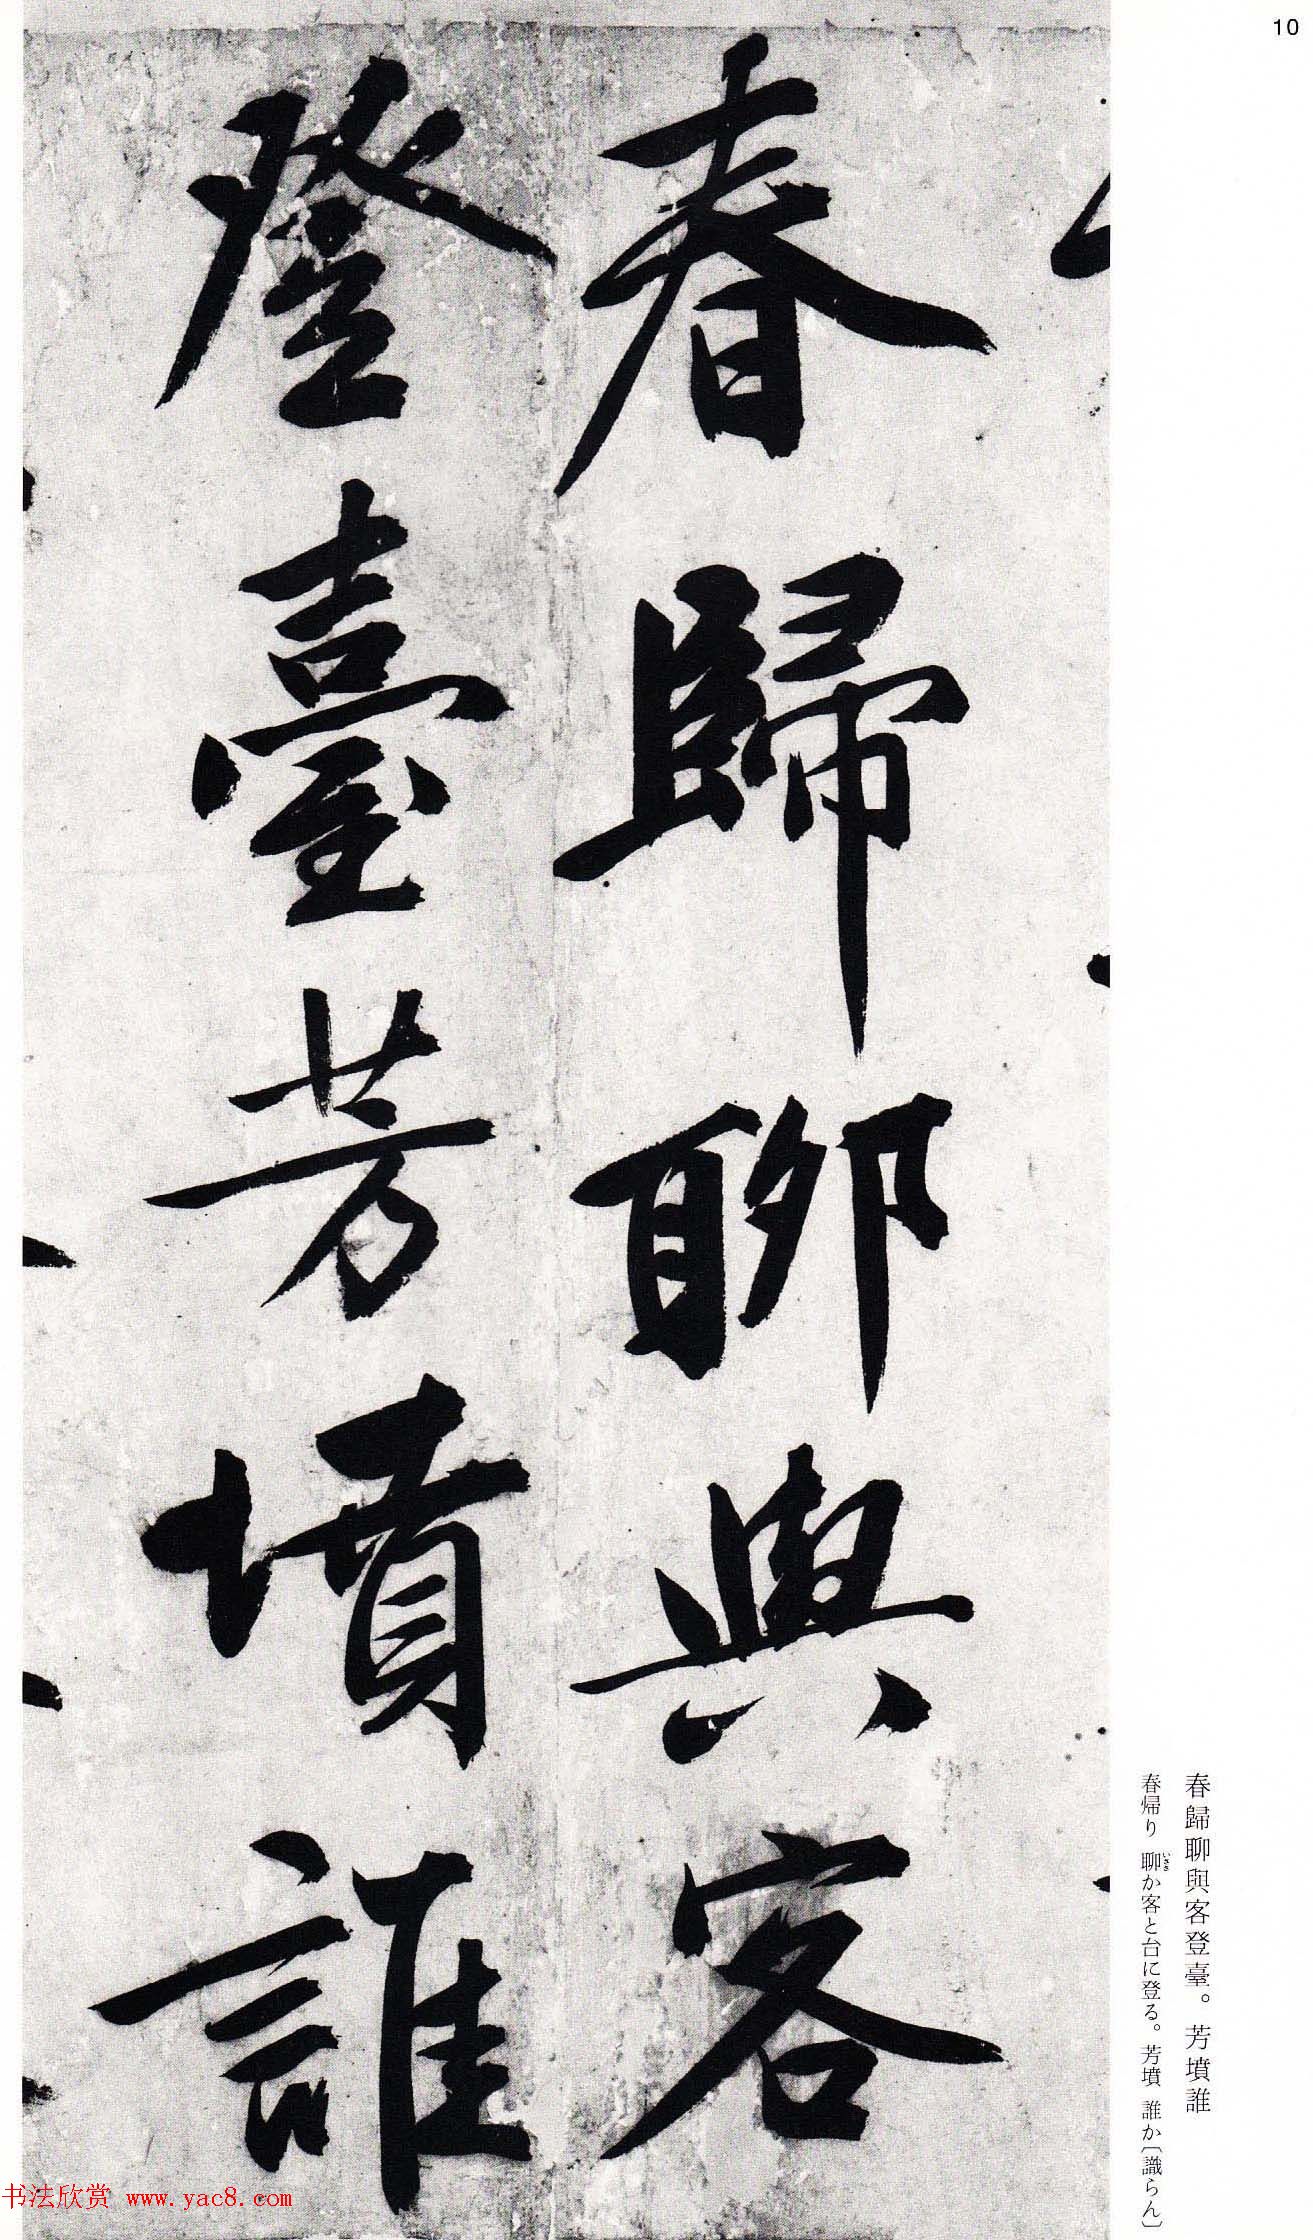 10
春歸聊與客
登臺芳墳誰
春歸聊與客登臺。芳墳誰
春帰り 聊か客と台に登る。芳墳 誰か〔識らん〕
いささ
书法欣赏 www.yac8.com